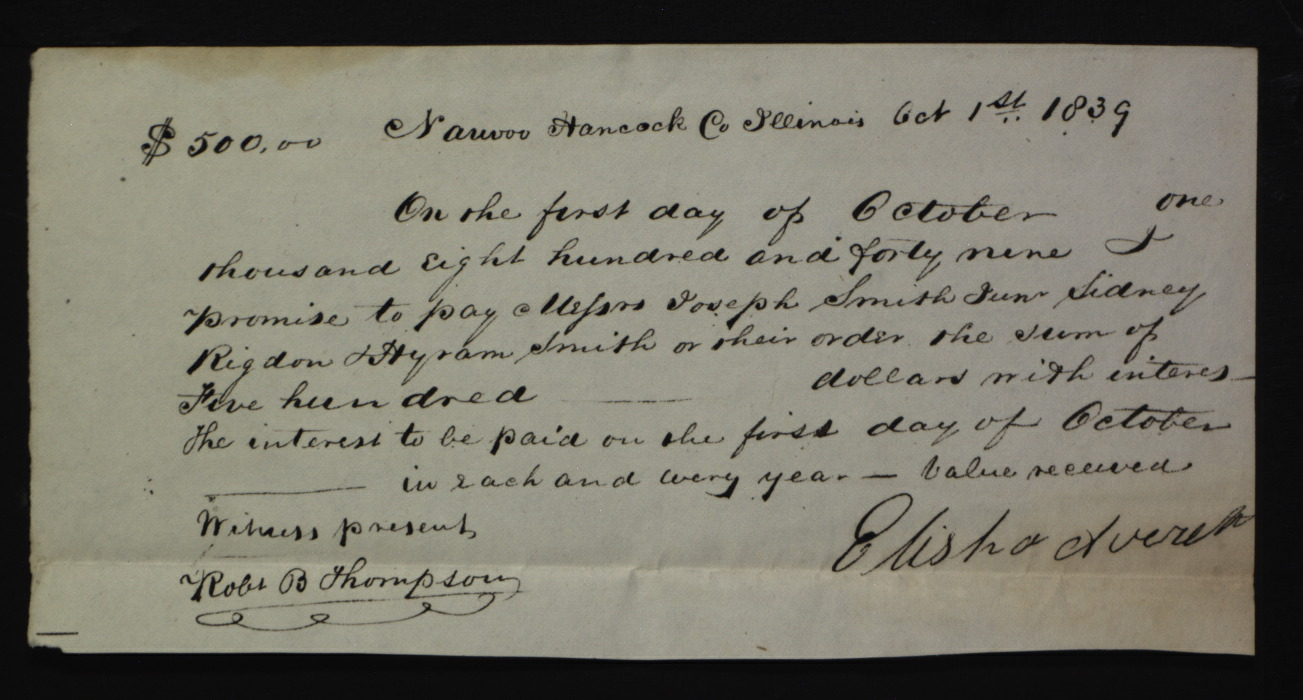 $500.00 Nauvoo Hancock Co Illinois Oct 1st. 1839
On the first day of October one
thousand Eight hundred and forty nine I
promise to pay Messrs Joseph Smith Junr Sidney
Rigdon & Hyram Smith or their order the sum of
Five hundred —— dollars with interes
The interest to be paid on the first day of October
—— in each and every year — Value received
Witness present
Elisha Averett
Robt B Thompson